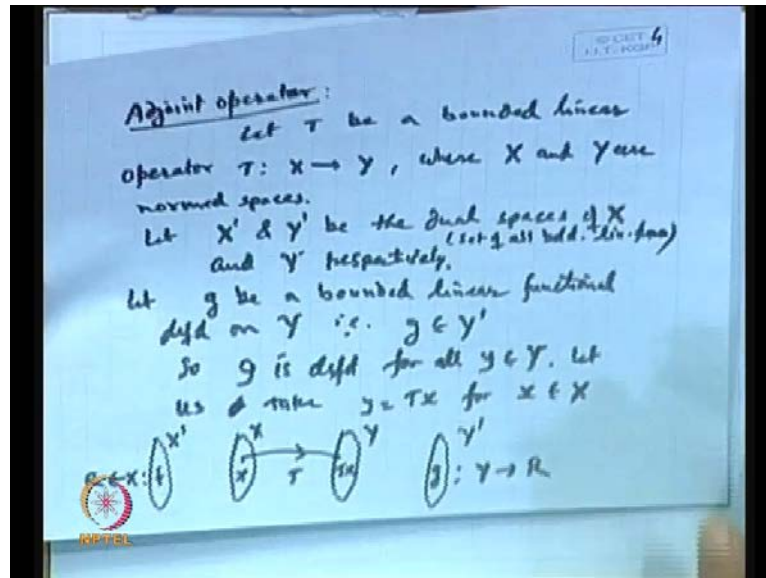 © CET
I.I.T. KGP
4
Adjoint operator:
Let T be a bounded linear
operator T: X → Y, where X and Y are
normed spaces.
Let X' & Y' be the dual spaces of X
(set of all bdd. lin. fun)
and Y respectively.
Let g be a bounded linear functional
defd on Y i.e. g ∈ Y'
So g is defd for all y ∈ Y. Let
us take y = Tx for x ∈ X
X' X Y Y'
R ← X: f x T Tx g : Y → R
NPTEL